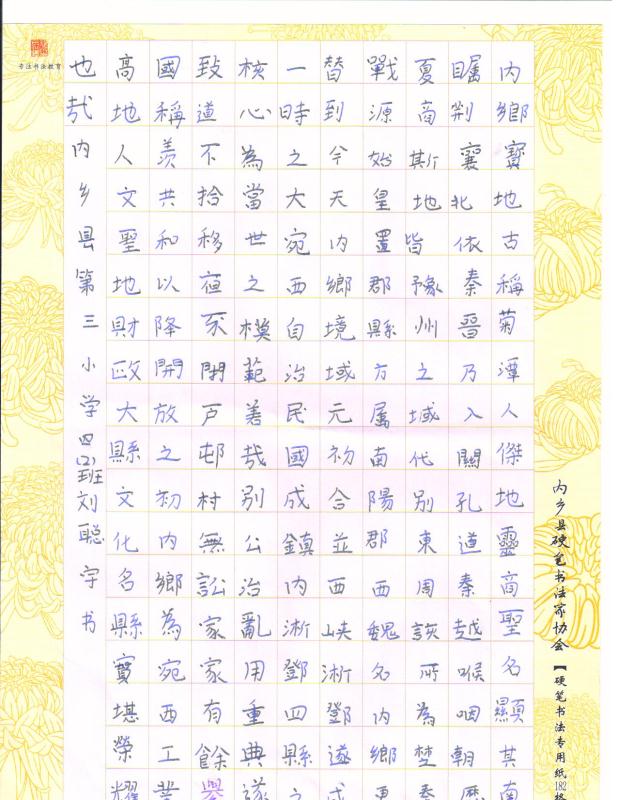 专注书法教育
内鄉寶地古稱菊潭人傑地靈商聖名顯其南
瞩荆襄北依秦晉乃入關孔道秦越喉咽朝歷
夏商斯地皆豫州之域代别東周該所為楚秦
戰源始皇置郡縣方属南陽郡西魏名内鄉更
替到今天内鄉境域元初合並西峡淅鄧遂成
一時之大宛西自治民國成鎮内淅鄧四縣之
核心為當世之模範善哉别公治亂用重典遂
致道不拾移夜不閉戸邨村無訟家家有餘譽
國稱羨共和以降開放之初内鄉為宛西工業
高地人文聖地財政大縣文化名縣寶堪榮耀
也哉内乡县第三小学四(2)班刘聪宇书
内乡县硬笔书法家协会【硬笔书法专用纸182格